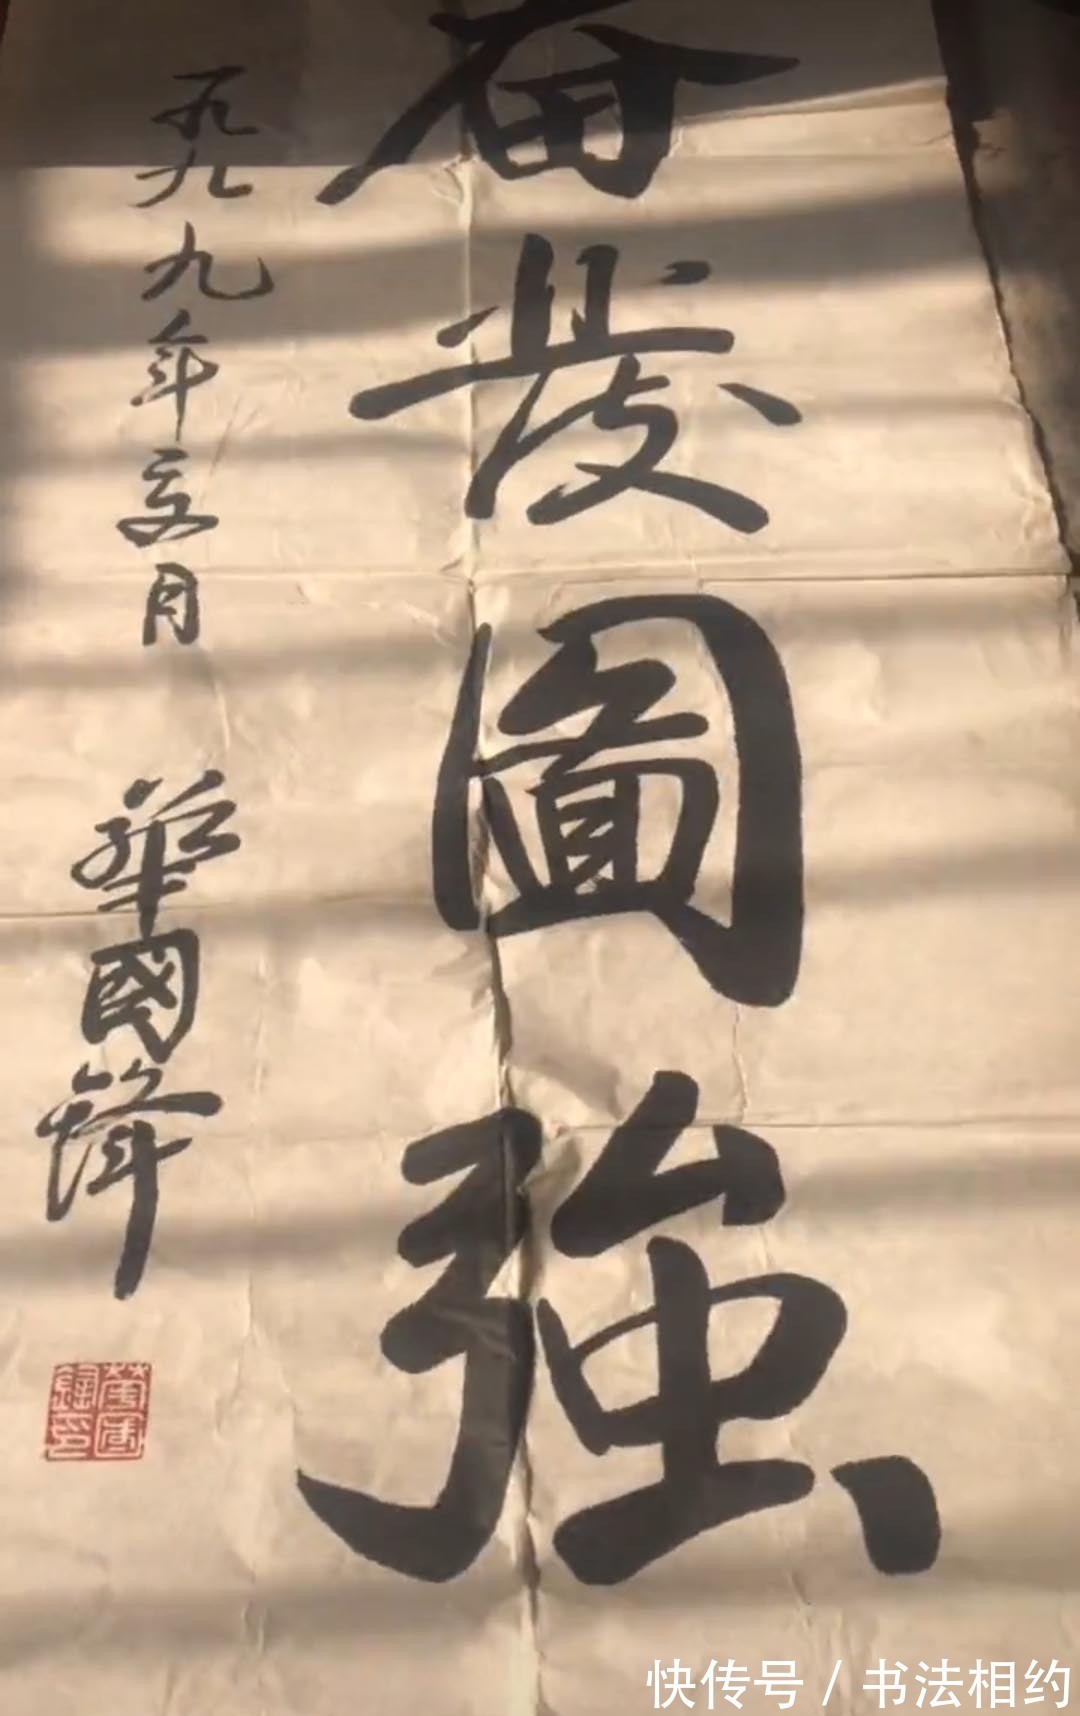 奋發圖強
一九九九年夏月
華國鋒
華國鋒印
快传号 / 书法相约